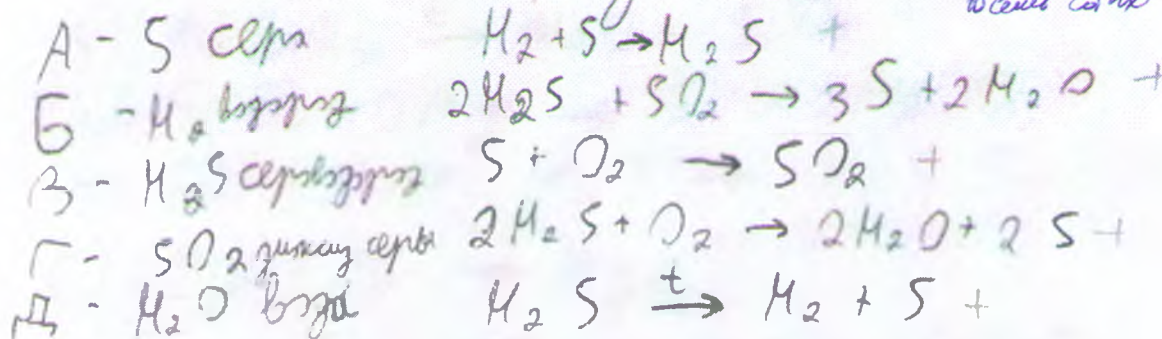 А - S сера H2 + S → H2S +
Б - H2 водород 2H2S + SO2 → 3S + 2H2O +
В - H2S сероводород S + O2 → SO2 +
Г - SO2 диоксид серы 2H2S + O2 → 2H2O + 2S +
Д - H2O вода H2S t→ H2 + S +